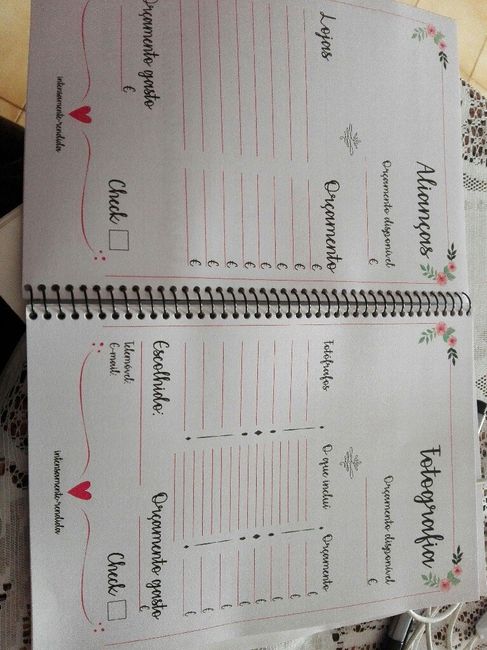 Alianças
Orçamento disponível
€
Lojas Orçamento
€
€
€
€
€
€
€
€
Orçamento gasto
€
Check
intensamente-rendida
Fotografia
Orçamento disponível
€
Fotógrafos O que inclui Orçamento
€
€
€
€
€
€
€
Escolhido: Orçamento gasto
€
Telemóvel:
E-mail:
Check
intensamente-rendida